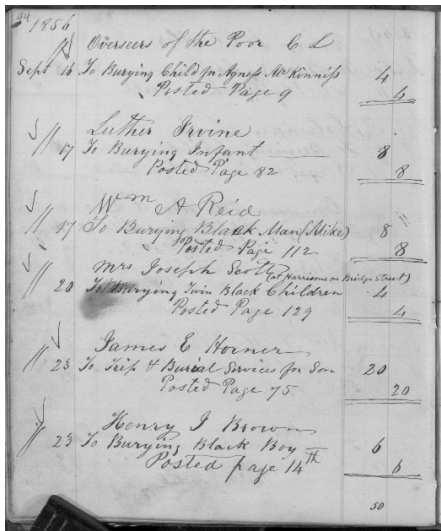 1856
Overseers of the Poor C L
Sept 16 To Burying Child for Agness McKinniss 4
Posted Page 9 4
Luther Irvine
17 To Burying Infant 8
Posted Page 82 8
Wm A Reid
17 To Burying Black Man (Mike) 8
Posted Page 112 8
Mrs Joseph Scott (at Harrisons on Bridge Street)
20 To Burying Twin Black Children 4
Posted Page 129 4
James E Horner
23 To Trip & Burial Services for Son 20
Posted Page 75 20
Henry J Brown
23 To Burying Black Boy 6
Posted page 14th 6
50